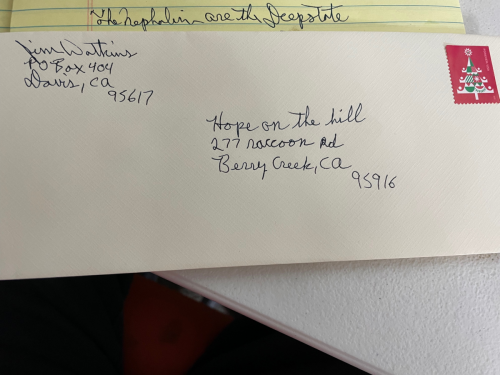 The Nephalim are the Deepstate
Jim Watkins
PO Box 404
Davis, CA
95617
Hope on the hill
277 raccoon Rd
Berry Creek, CA
95916